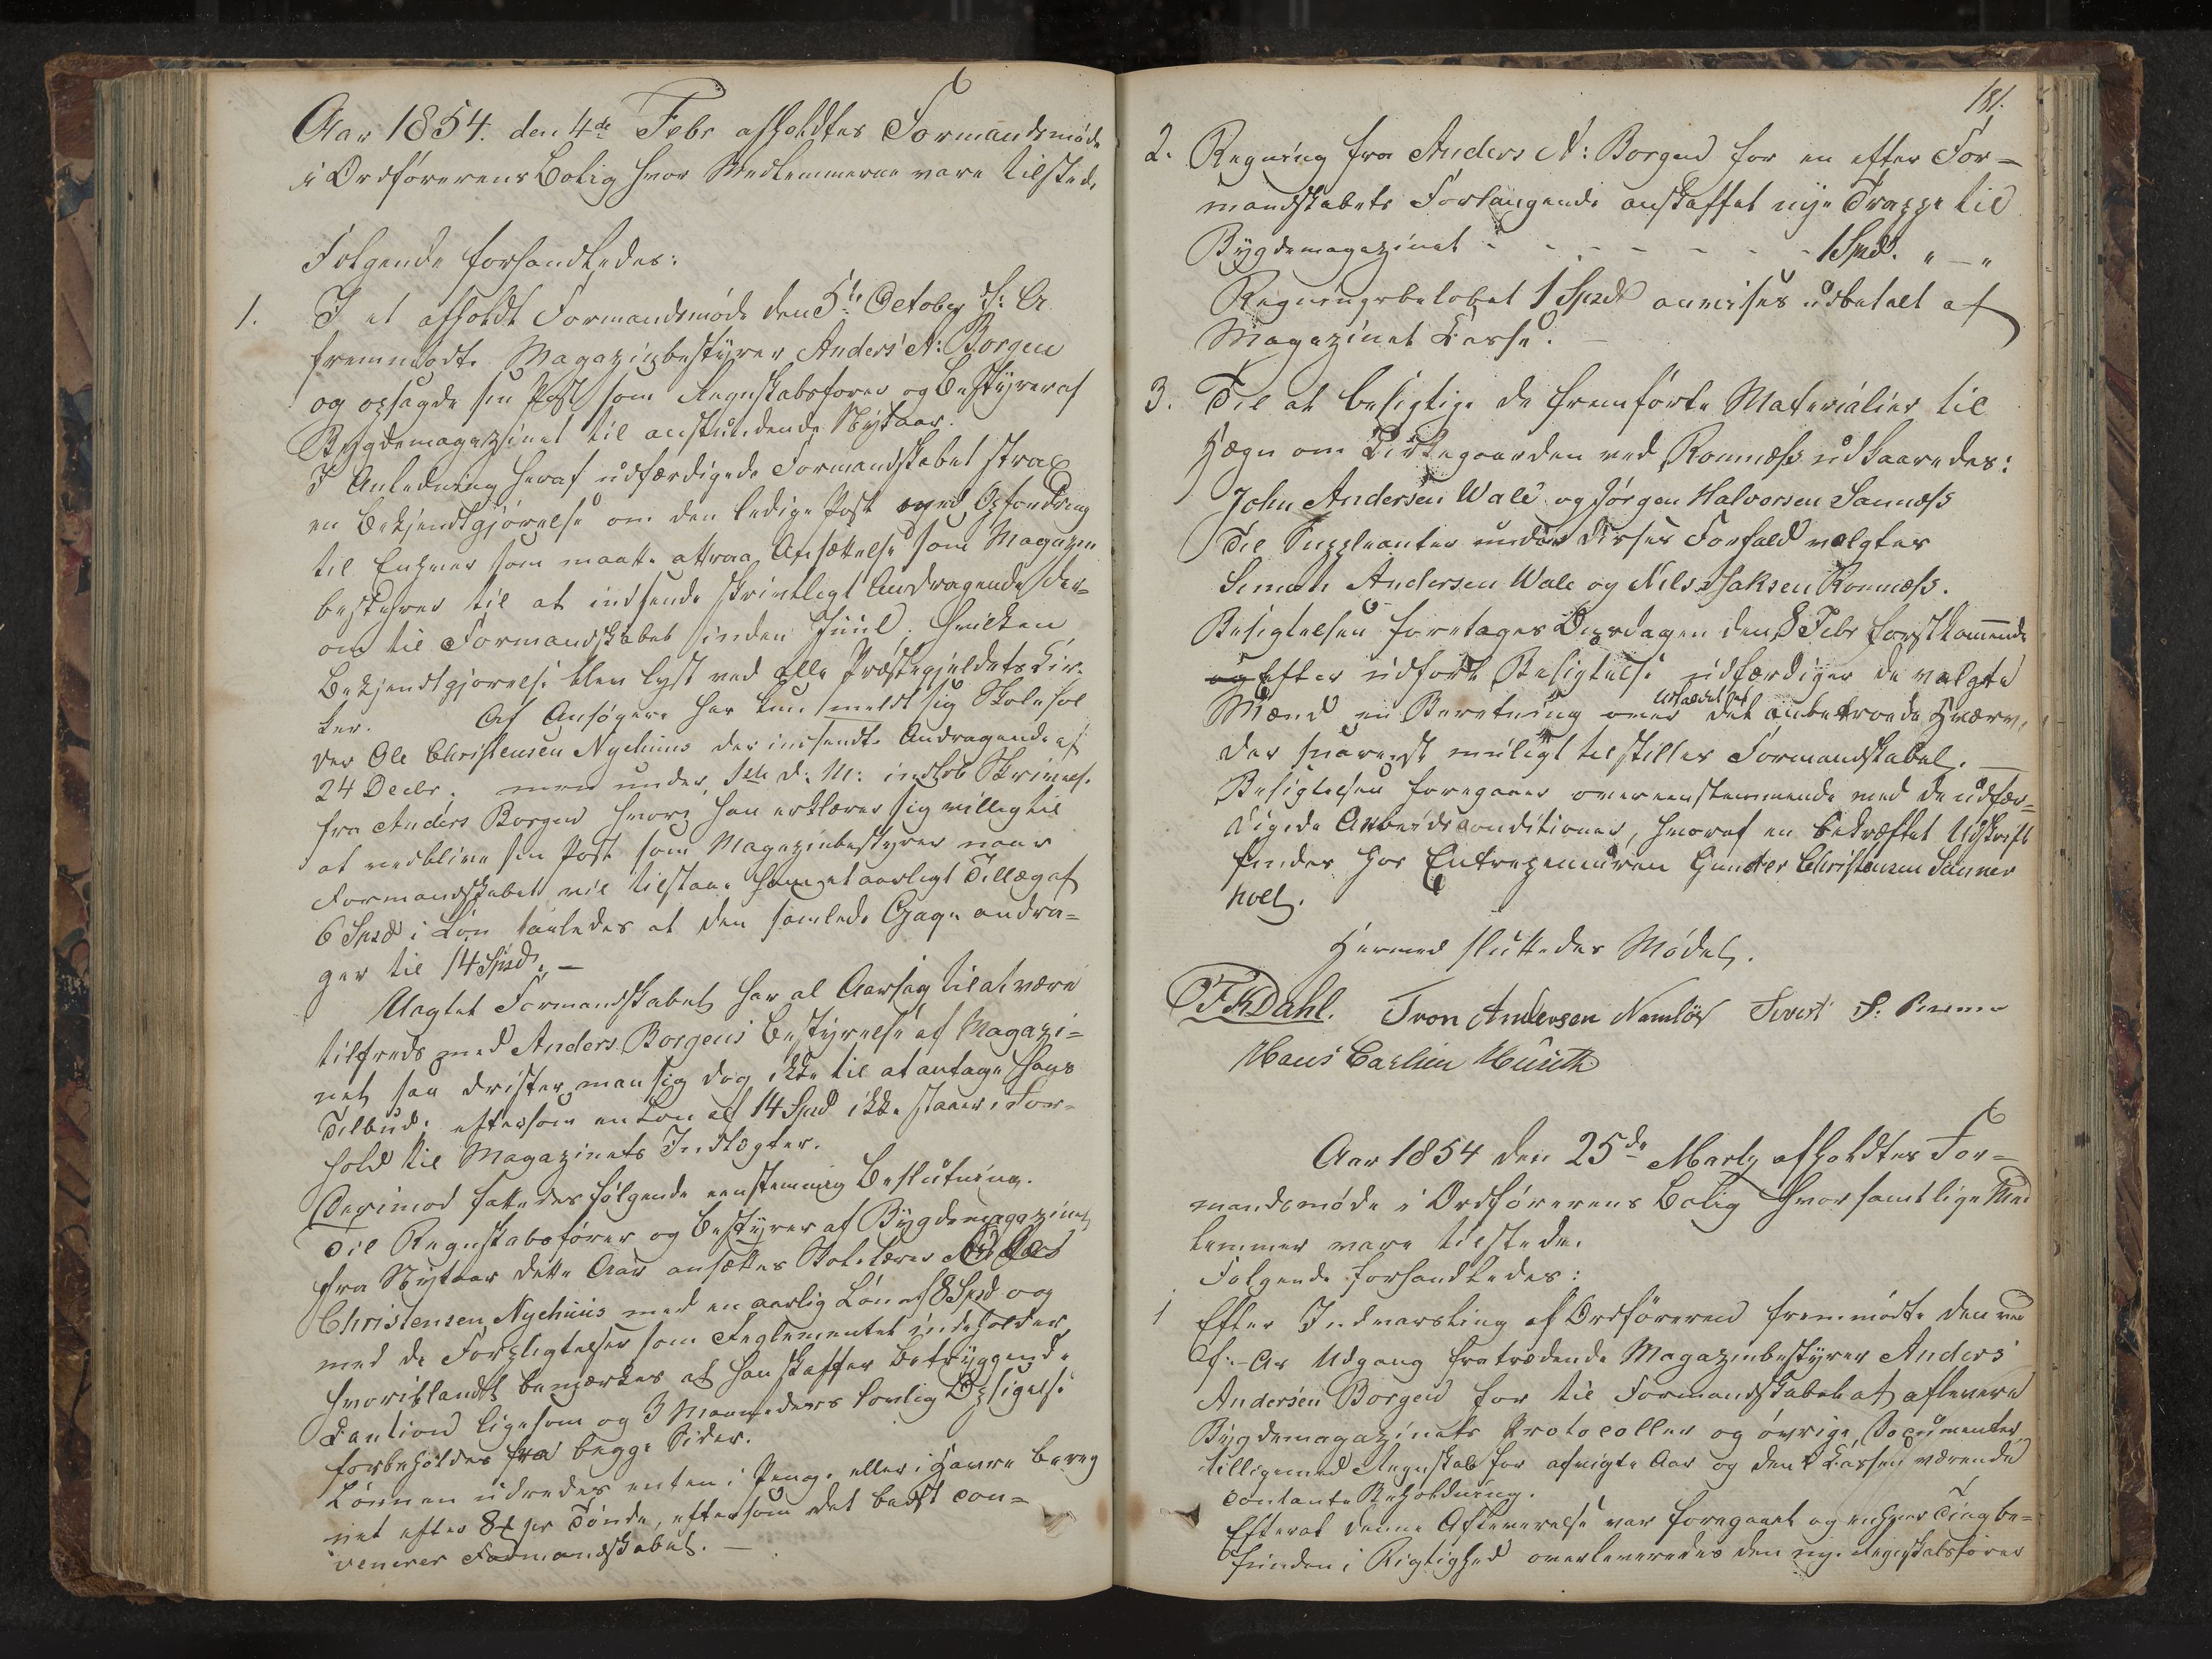 Aar 1854. den 4de Febr afholdtes Formandsmøde
i Ordførerens Bolig hvor Medlemmerne vare tilstede.
Følgende forhandledes:
1. I et afholdt Formandsmøde den 5te October f: A
fremmødte Magazinbestyrer Anders A: Borgen
og opsagde sin Post som Regnskabsfører og Bestyrer af
Bygdemagazinet til anstundende Nytaar.
I Anledning heraf udfærdigede Formandskabet strax
en Bekjendtgjørelse om den ledige Post med Opfordring
til Enhver som maatte attraa Ansættelse som Magazin
bestyrer til at indsende skriftligt Andragende der=
om til Formandskabet inden Juul, hvilken
Bekjendtgjørelse blev lyst ved alle Præstegjeldets Kir-
ker. Af Ansøgere har kun meldt sig Skolehol
der Ole Christensen Nyehuus der indsendte Andragende af
24 Decbr. men under 1ste d: M: indløb Skrivelse
fra Anders Borgen hvorp han erklærer sig villig til
at vedblive sin Post som Magazinbestyrer naar
Formandskabet vil tilstaae ham et aarligt Tillæg af
6 Spd i Løn saaledes at den samlede Gage andra=
ger til 14 Spd. –
Uagtet Formandskabet har al Aarsag til at være
tilfreds med Anders Borgens Bestyrelse af Magazi=
net saa drister man sig dog ikke til at antage hans
Tilbud, eftersom en Løn af 14 Spd ikke staaer i For-
hold til Magazinets Indtægter.
Derimod fattedes følgende eenstemmig Beslutning.
Til Regnskabsfører og Bestyrer af Bygdemagazinet
fra Nytaar dette Aar ansættes Skolelærer
Christensen Nyehuus med en aarlig Løn af 8 Spd og
med de Forpligtelser som Reglementet indeholder,
hvoriblandt bemærkes at han skaffer betryggende
Caution ligesom og 3 Maaneders lovlig Opsigelse
forbeholdes fra begge Sider.
Lønnen udredes enten i Penge eller i Havre bereg
net efter 8 pr Tønde, eftersom det bedst con=
venerer Formandskabet. —
181.
2. Regning fra Anders A: Borgen for en efter For=
mandskabets Forlangende anskaffet nye Trappe til
Bygdemagazinet - - - - - - - 1 Spd. " – "
Regningsbeløbet 1 Spd anvises udbetalt af
Magazinet Kasse. –
3. Til at besigtige de fremførte Materialier til
Hægn om Kirkegaarden ved Romnæss udkaaredes:
John Andersen Wale og Jørgen Halvorsen Sannæss
Til Suppleanter under disses Forfald valgtes
Simon Andersen Wale og Nils Isaksen Romnæss.
Besigtelsen foretages Onsdagen den 8 Febr førstkommende
og Efter udført Besigtelse udfærdiger de valgte
Mænd en Beretning over Udfaldet af det anbetroede Hværv,
der snarest muligt tilstilles Formandskabet. —
Besigtelsen foregaaer overeenstemmende med de udfær=
digede Arbeidsconditioner, hvoraf en bekræftet Udskrift
findes hos Entrepeneuren Gunder Christensen Sanner
holt.
Hermed sluttedes Mødet.
FKDahl. Tron Andersen Namløs Sivert S.
Hans Carlsen
Aar 1854 den 25de Marts afholdtes For=
mandsmøde i Ordførerens Bolig hvor samtlige Med
lemmer vare tilstede.
Følgende forhandledes:
1 Efter Indvarsling af Ordføreren fremmødte den ved
f: Ar Udgang fratrædende Magazinbestyrer Anders
Andersen Borgen for til Formandskabet at aflevere
Bygdemagazinets Protocoller og øvrige Documenter
tilligemed Regnskab for afvigte Aar og den i Kassen værende
contante Beholdning.
Efterat denne Afleverelse var foregaaet og enhver Ting be=
funden i Rigtighed overleveredes den nye Regnskabsfører